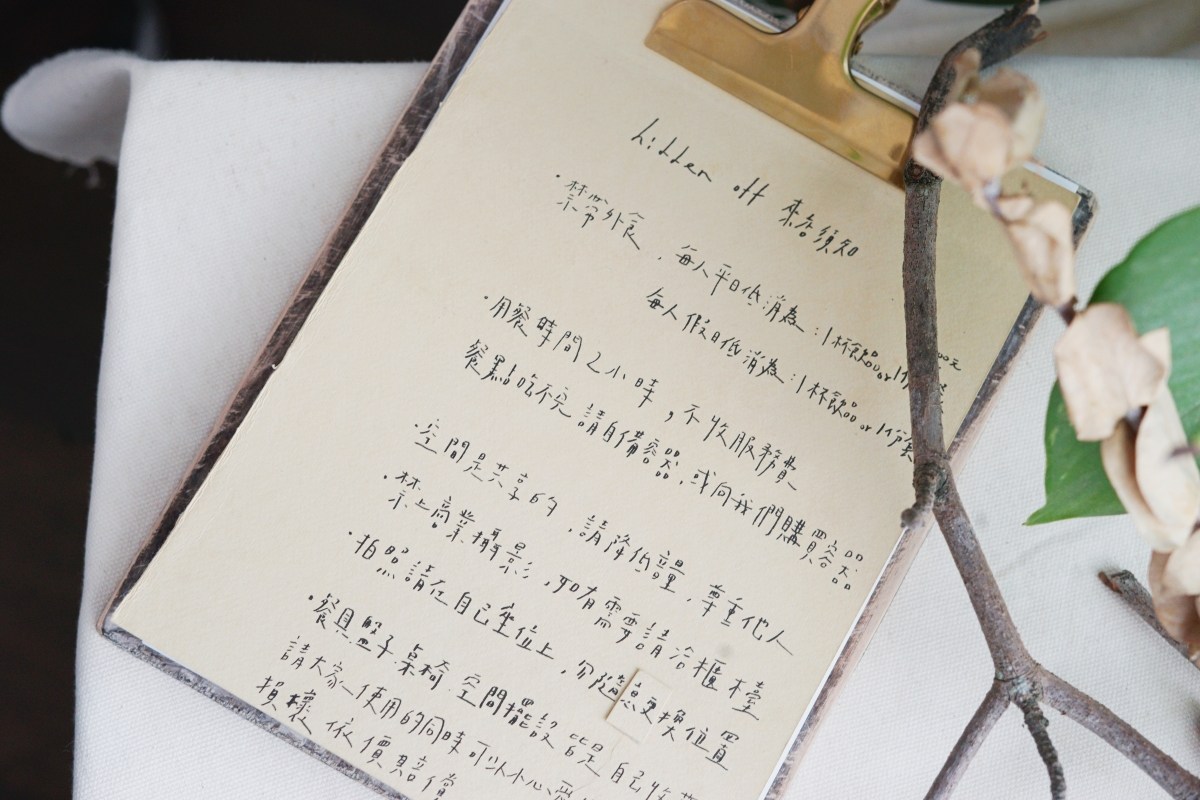 hidden off 來客須知
·禁帶外食，每人平日低消為：1杯飲品or1份 00元
每人假日低消為：1杯飲品or1份套
·用餐時間2小時，不收服務費
餐點吃不完請自備容器，或向我們購買容器
·空間是共享的，請降低音量，尊重他人
·禁止商業攝影，如有需要請洽櫃檯
·拍照請在自己座位上，勿隨意更換位置
·餐具、盤子、桌椅、空間擺設皆是自己收
請大家使用的同時可以小心愛
損壞依價賠償